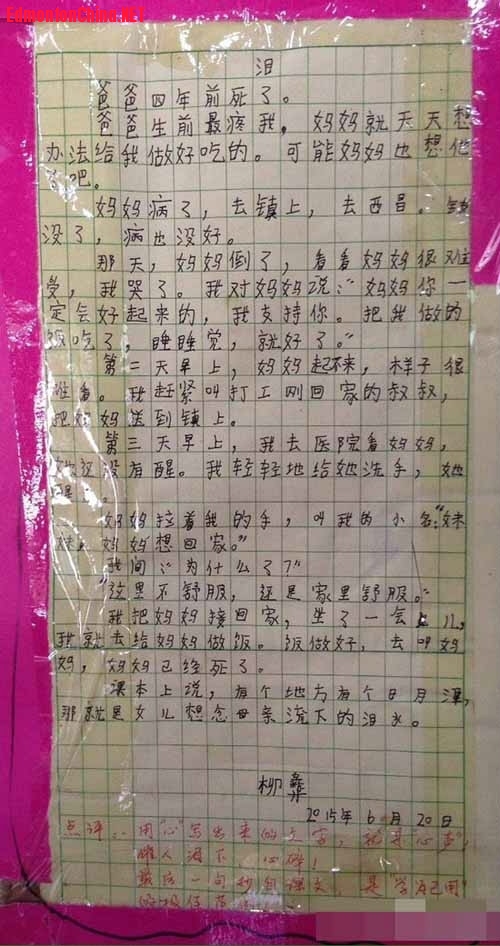 EdmontonChina.NET
泪
爸爸四年前死了。
爸爸生前最疼我，妈妈就天天想
办法给我做好吃的。可能妈妈也想他
了吧。
妈妈病了，去镇上，去西昌。钱
没了，病也没好。
那天，妈妈倒了，看看妈妈很难
受，我哭了。我对妈妈说：“妈妈你一
定会好起来的，我支持你。把我做的
饭吃了，睡睡觉，就好了。”
第二天早上，妈妈起不来，样子很
难看。我赶紧叫打工刚回家的叔叔，
把妈妈送到镇上。
第三天早上，我去医院看妈妈，
她还没有醒。我轻轻地给她洗手，她
醒
妈妈拉着我的手，叫我的小名：“妹
妹，妈妈想回家。”
我问：“为什么了？”
“这里不舒服，还是家里舒服。”
我把妈妈接回家，坐了一会儿，
我就去给妈妈做饭。饭做好，去叫妈
妈，妈妈已经死了。
课本上说，有个地方有个日月潭，
那就是女儿想念母亲流下的泪水。
柳彝
2015年6月20日
点评：用“心”写出来的文字，就是“心声”，
催人泪下、心碎！
最后一句抄自课文，是“学为己用”
的